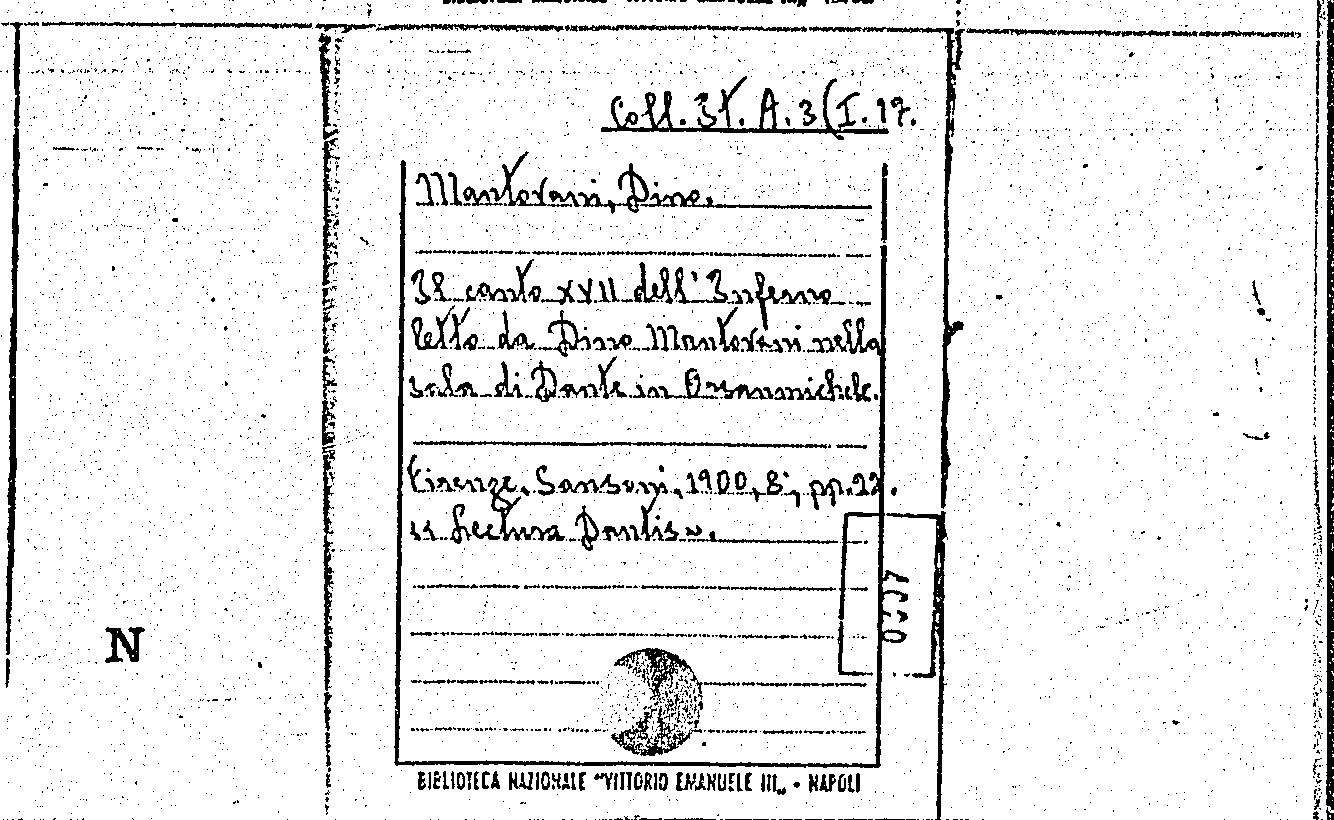 Coll. St. A. 3 (I. 17.
Mantovani, Dino.
Il canto XVII dell' Inferno
letto da Dino Mantovani nella
sala di Dante in Orsanmichele.
Firenze, Sansoni, 1900, 8°, pp.
« Lectura Dantis ».
N
BIBLIOTECA NAZIONALE "VITTORIO EMANUELE III„ • NAPOLI